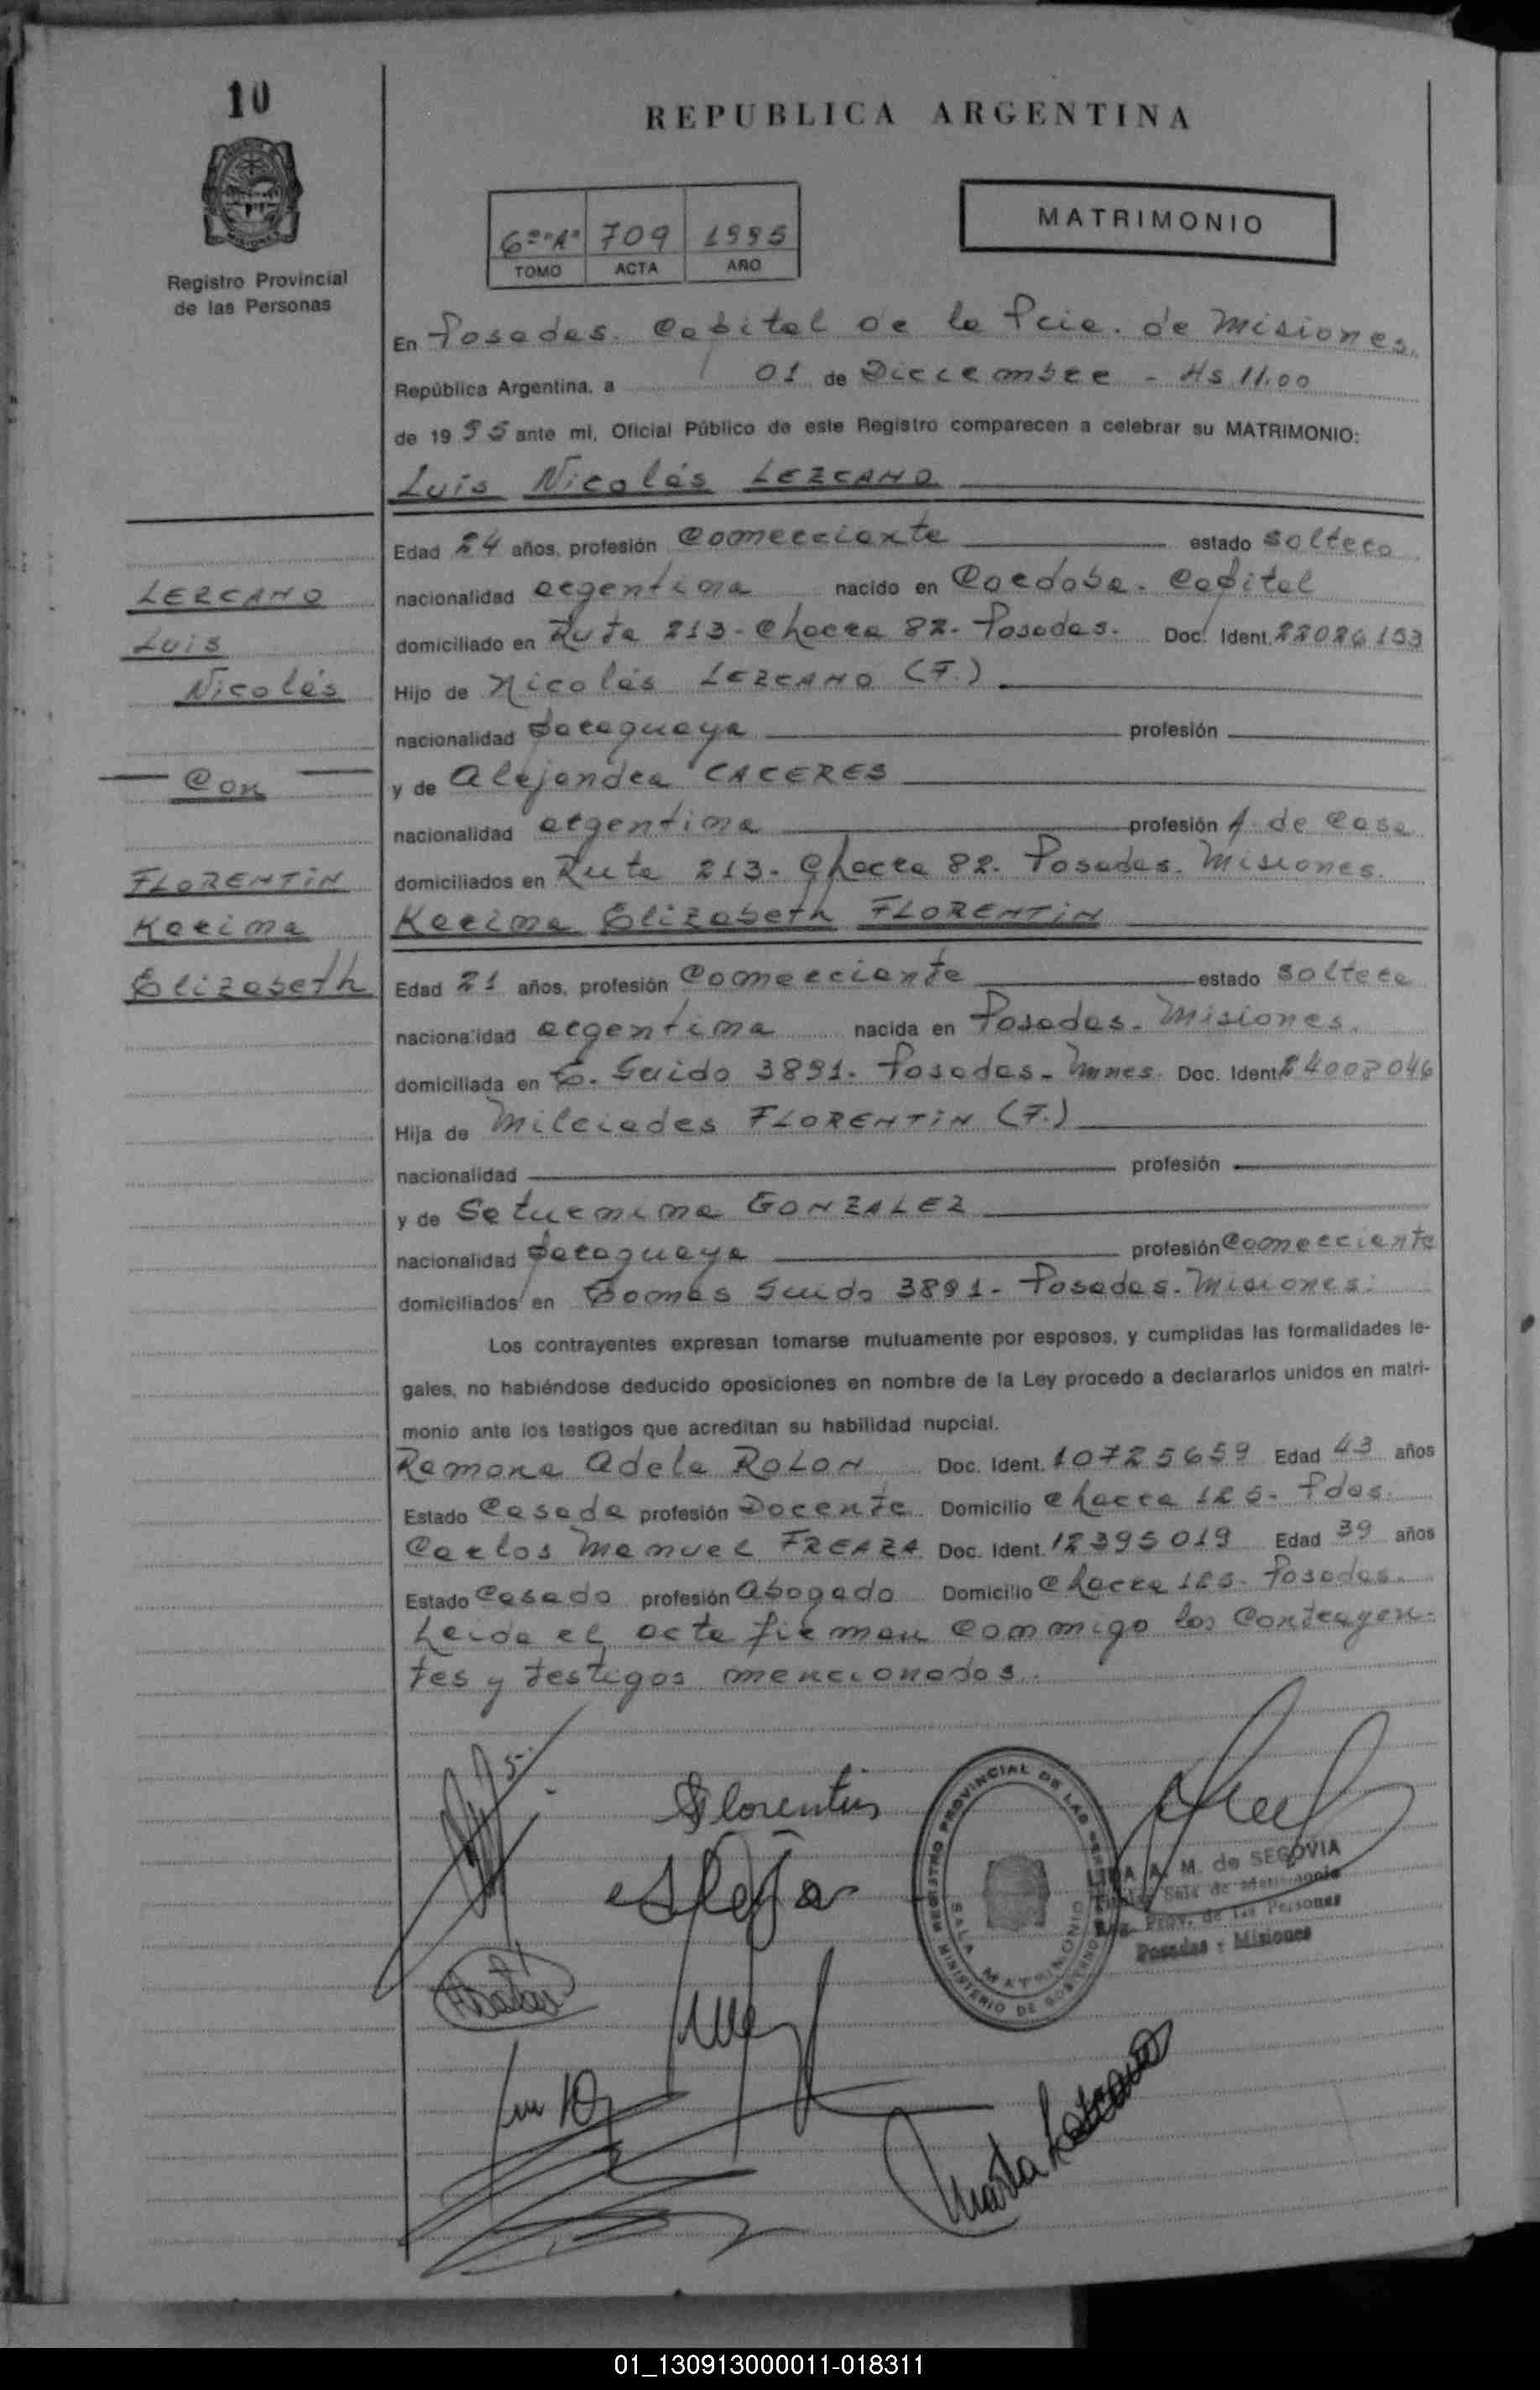 10
REPUBLICA ARGENTINA
MATRIMONIO
6º "A" 709 1995
TOMO ACTA AÑO
Registro Provincial
de las Personas
En Posadas. Capital de la Pcia. de Misiones.
República Argentina, a 01 de Diciembre - Hs 11.00
de 1995 ante mi, Oficial Público de este Registro comparecen a celebrar su MATRIMONIO:
Luis Nicolás LEZCANO
Edad 24 años, profesión Comerciante estado soltero
nacionalidad argentina nacido en Córdoba - Capital
domiciliado en Ruta 213 - Chacra 82 - Posadas. Doc. Ident. 22026153
Hijo de Nicolás LEZCANO (F.)
nacionalidad paraguaya profesión
y de Alejandra CACERES
nacionalidad argentina profesión A. de Casa
domiciliados en Ruta 213 - Chacra 82. Posadas. Misiones.
Karina Elizabeth FLORENTIN
Edad 21 años, profesión Comerciante estado soltera
nacionalidad argentina nacida en Posadas - Misiones.
domiciliada en T. Guido 3891. Posadas - Mnes. Doc. Ident. 24002046
Hija de Milciades FLORENTIN (F.)
nacionalidad profesión
y de Saturnina GONZALEZ
nacionalidad paraguaya profesión Comerciante
domiciliados en Tomás Guido 3891 - Posadas. Misiones.
Los contrayentes expresan tomarse mutuamente por esposos, y cumplidas las formalidades le-
gales, no habiéndose deducido oposiciones en nombre de la Ley procedo a declararlos unidos en matri-
monio ante los testigos que acreditan su habilidad nupcial.
Ramona Adela ROLON Doc. Ident. 10725659 Edad 43 años
Estado Casada profesión Docente Domicilio Chacra 126 - Pdas.
Carlos Manuel FREAZA Doc. Ident. 12395019 Edad 39 años
Estado Casado profesión Abogado Domicilio Chacra 126 - Posadas.
Leida el acta firman conmigo los contrayen-
tes y testigos mencionados.
LEZCANO
Luis
Nicolás
Con
FLORENTIN
Karina
Elizabeth
Florentin
REGISTRO PROVINCIAL DE LAS PERSONAS
SALA MATRIMONIO
MINISTERIO DE GOBIERNO
A. M. de SEGOVIA
Sala de Matrimonio
Reg. Prov. de las Personas
Posadas - Misiones
Marta Lezcano
01_130913000011-018311